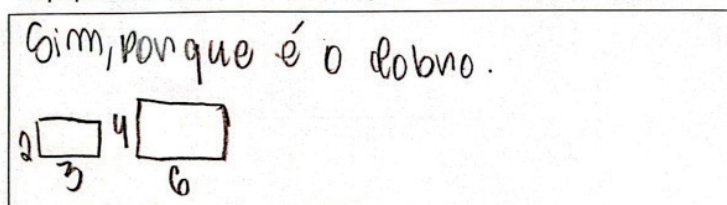 Sim, porque é o dobro.
2 4
3 6